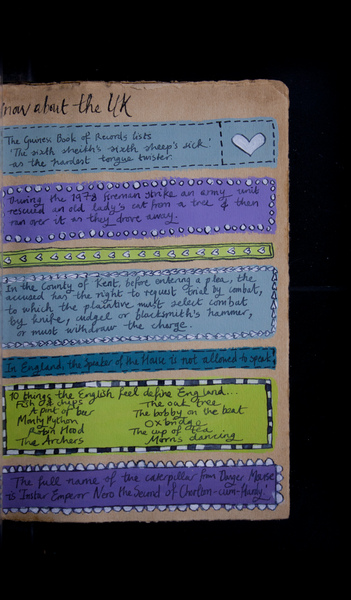 now about the UK
The Guiness Book of Records lists
'The sixth sheikh's sixth sheep's sick'
as the hardest tongue twister.
During the 1978 fireman strike an army unit
rescued an old lady's cat from a tree & then
ran over it as they drove away.
In the County of Kent, before entering a plea, the
accused has the right to request trial by combat,
to which the plaintive must select combat
by knife, cudgel or blacksmith's hammer,
or must withdraw the charge.
In England, the Speaker of the House is not allowed to speak
10 things the English feel define England...
Fish and chips The oak tree
A pint of beer The bobby on the beat
Monty Python Oxbridge
Robin Hood The cup of tea
The Archers Morris dancing
The full name of the caterpillar from Danger Mouse
is Instar Emperor Nero the Second of Chorlton-cum-Hardy